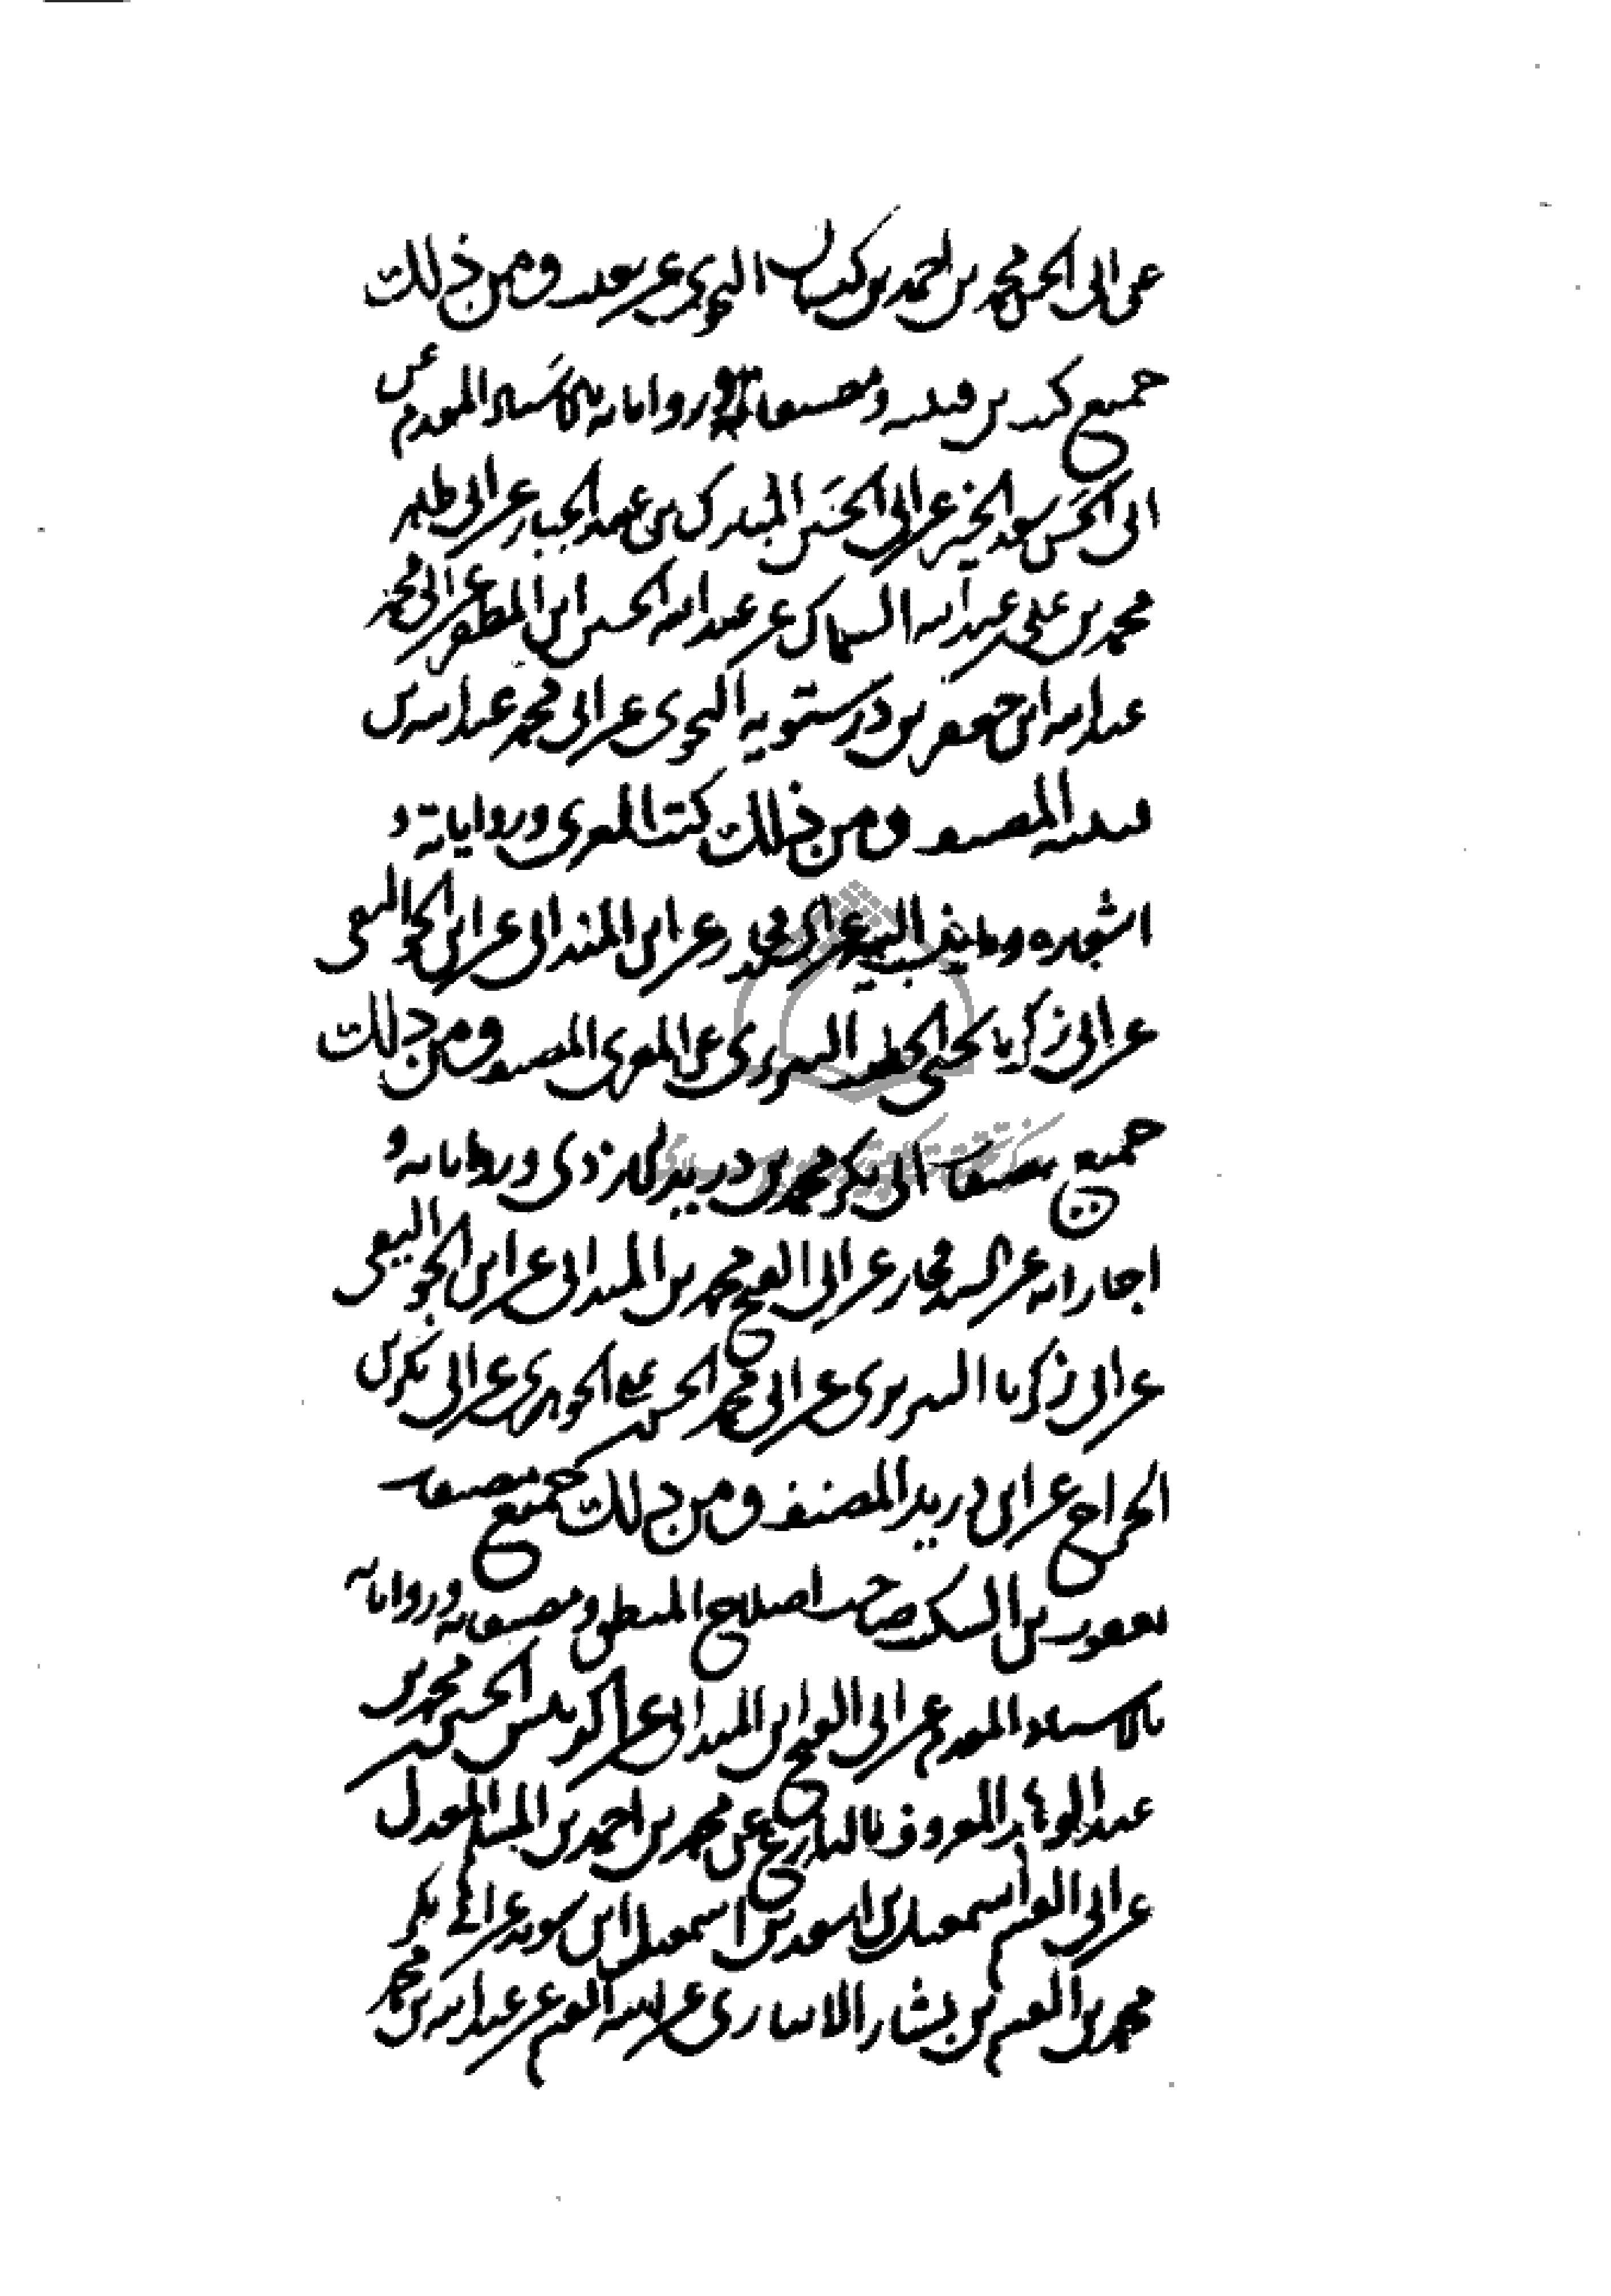 عن ابى الحسن محمد بن احمد بن كيسان النحوى عن ثعلب ومن ذلك
جميع كتب بن قتيبه ومصنفاته ورواياته بالاسناد المقدم عن
ابى الحسن سعد الخير عن ابى الحسن المبارك بن عبد الجبار عن ابى طاهر
محمد بن على بن عبد الله السماك عن عبد الله الحسين ابن المظفر عن ابى محمد
عبد الله ابن جعفر بن درستويه النحوى عن ابى محمد عبد الله بن
قتيبه المصنف ومن ذلك كتب المعرى ورواياته و
اشعاره وما ينسب اليه عن السيد فخار عن ابن المندائى عن ابن الجواليقى
عن ابى زكريا يحيى الخطيب التبريزى عن المعرى المصنف ومن ذلك
جميع مصنفات ابى بكر محمد بن دريد الازدى ورواياته و
اجازاته عن السيد فخار عن ابى الفتح محمد بن المندائى عن ابن الجواليقى
عن ابى زكريا التبريزى عن ابى محمد الحسن بن على الجوهرى عن ابى بكر بن
الجراح عن ابن دريد المصنف ومن ذلك جميع مصنفات
يعقوب بن السكيت صاحب اصلاح المنطق ومصنفاته ورواياته
بالاسناد المقدم عن ابى الفتح ابن المندائى عن الحسين بن محمد بن
عبد الوهاب المعروف بالبارع عن محمد بن احمد بن المسلم المعدل
عن ابى القسم اسمعيل بن اسعد بن اسمعيل ابن سويد عن ابى بكر
محمد بن القسم بن بشار الانبارى عن ابيه القسم عن عبد الله بن محمد